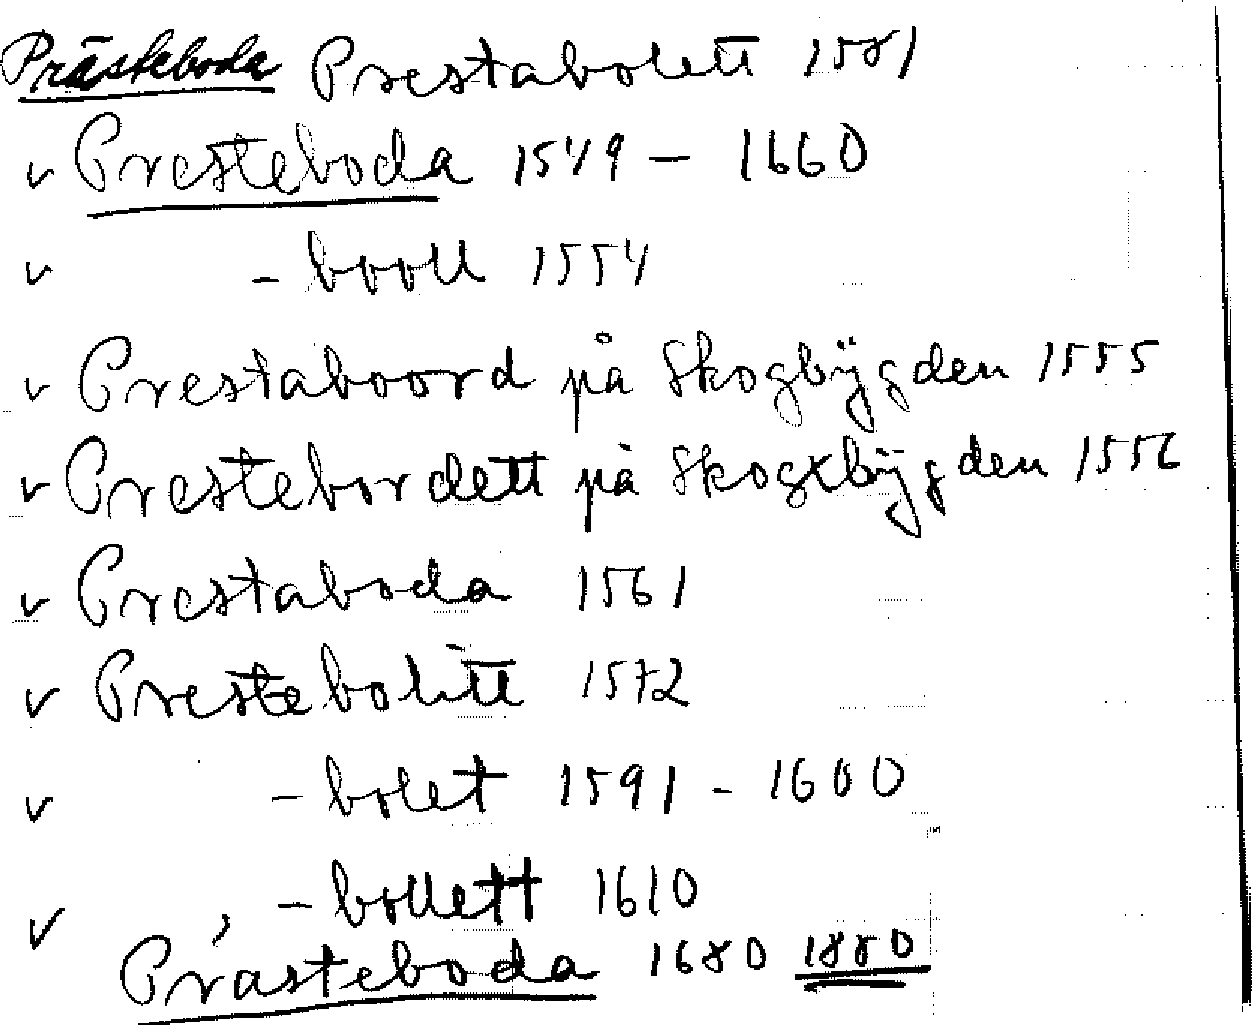 Prästeboda Prestabolett 1581
v Presteboda 1549 – 1660
v – booll 1554
v Prestaboord på Skogbÿgden 1555
v Prestebordett på Skogxbÿgden 1556
v Prestaboda 1561
v Prestebolitt 1572
v – bolet 1591 – 1600
v , – bollett 1610
Prästeboda 1680 1880